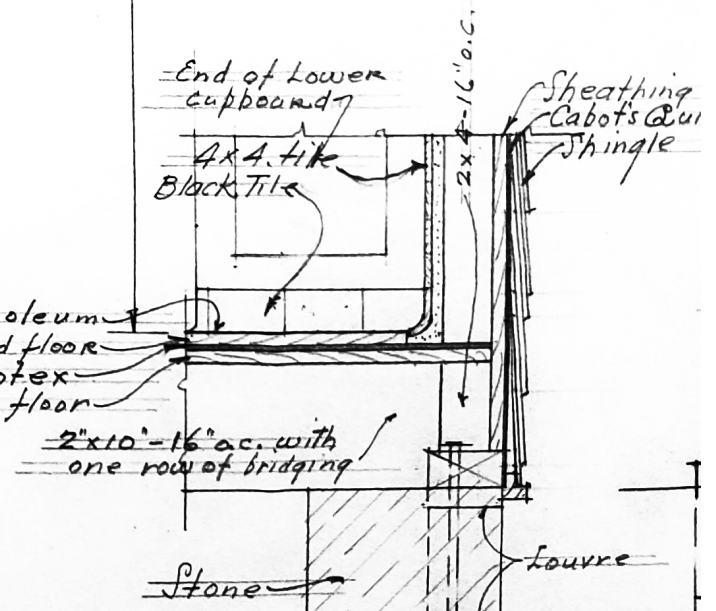 End of Lower
cupboard
4x4 tile
Black Tile
2x4-16"o.c.
Sheathing
Cabot's Qui
Shingle
oleum
d floor
otex
floor
2"x10"-16"o.c. with
one row of bridging
Stone
Louvre